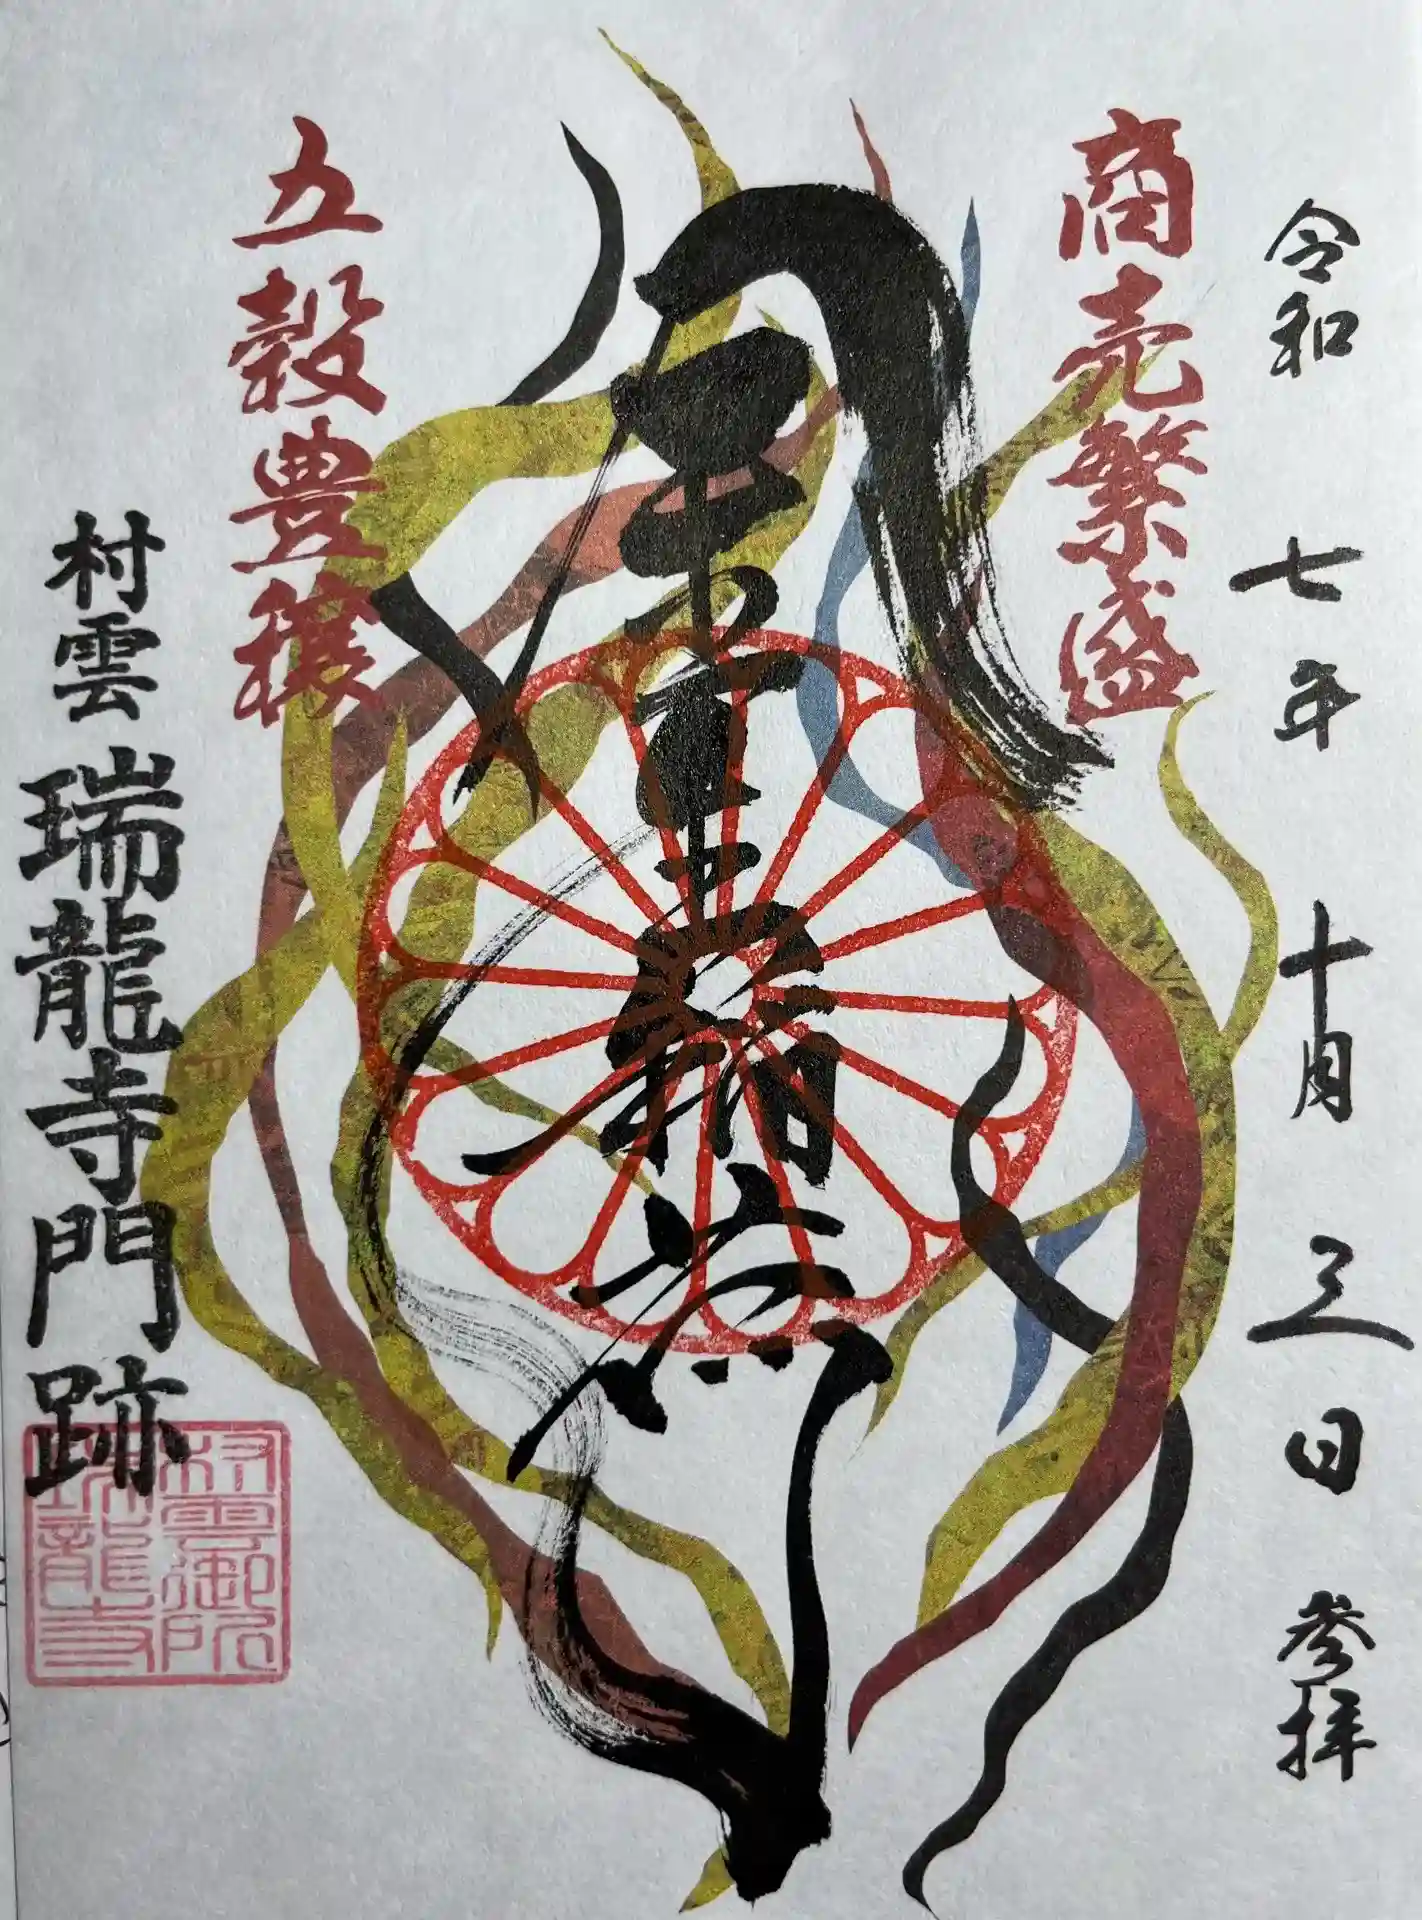 令和七年十月三日参拝
商売繁盛
五穀豊穣
村雲瑞龍寺門跡
村雲御所
瑞龍寺